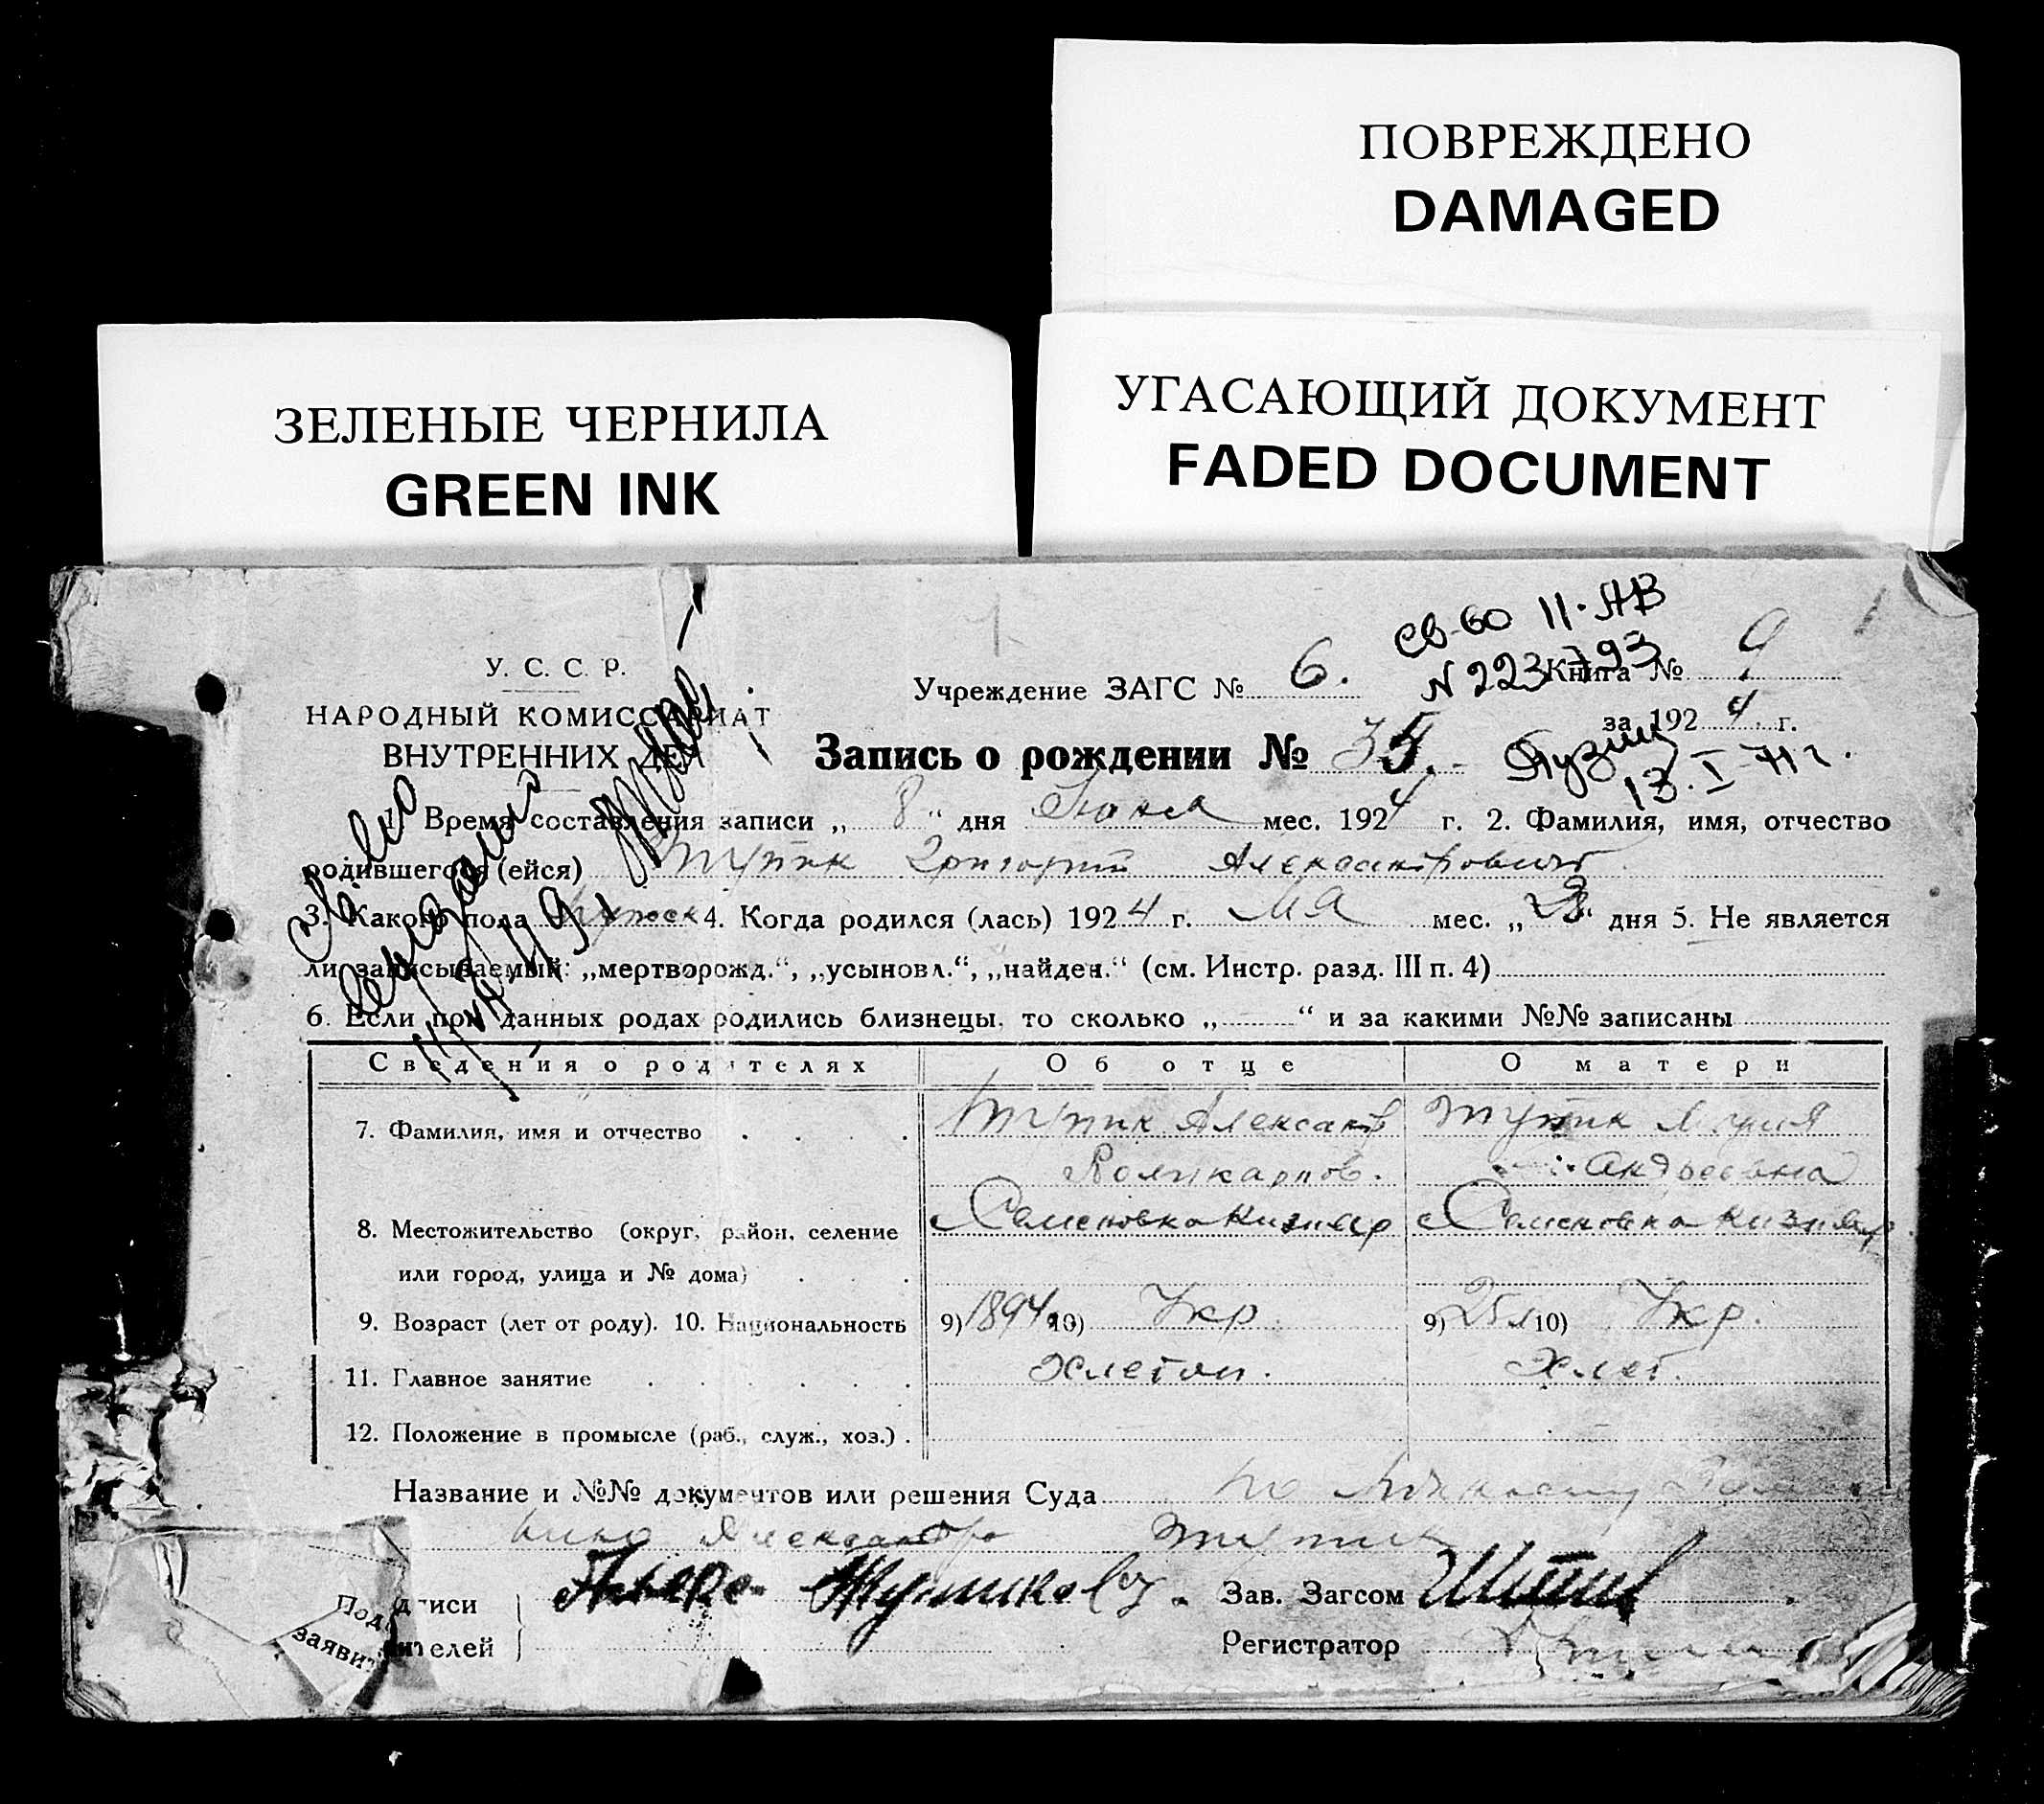 ПОВРЕЖДЕНО
DAMAGED
ЗЕЛЕНЫЕ ЧЕРНИЛА
GREEN INK
УГАСАЮЩИЙ ДОКУМЕНТ
FADED DOCUMENT
св-во II-АВ
N 223793
13.I-71 г.
У. С. С. Р.
НАРОДНЫЙ КОМИССАРИАТ
ВНУТРЕННИХ ДЕЛ
Учреждение ЗАГС № 6.
Книга № 9
за 1924 г.
Запись о рождении № 35.
1. Время составления записи „ 8 “ дня мес. 1924 г. 2. Фамилия, имя, отчество
родившегося (ейся) Тупик Григорий Александрович
3. Какого пола мужск 4. Когда родился (лась) 1924 г. Мая мес. „ “ дня 5. Не является
ли записываемый: „мертворожд.“, „усыновл.“, „найден.“ (см. Инстр. разд. III п. 4)
6. Если при данных родах родились близнецы, то сколько „ “ и за какими №№ записаны
Сведения о родителях Об отце О матери
7. Фамилия, имя и отчество Тупик Александр Тупик Мария
Поликарпов. Андреевна
8. Местожительство (округ, район, селение Семеновка Кизияр Семеновка Кизияр
или город, улица и № дома)
9. Возраст (лет от роду). 10. Национальность 9) 1894 10) Укр. 9) 25 л 10) Укр.
11. Главное занятие Хлебоп. Хлеб.
12. Положение в промысле (раб., служ., хоз.)
Название и №№ документов или решения Суда по
Александра Тупик
Подписи
заявителей
Зав. Загсом
Регистратор